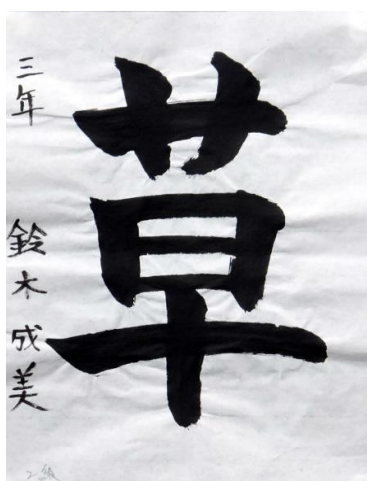 草
三年 鈴木成美
2級